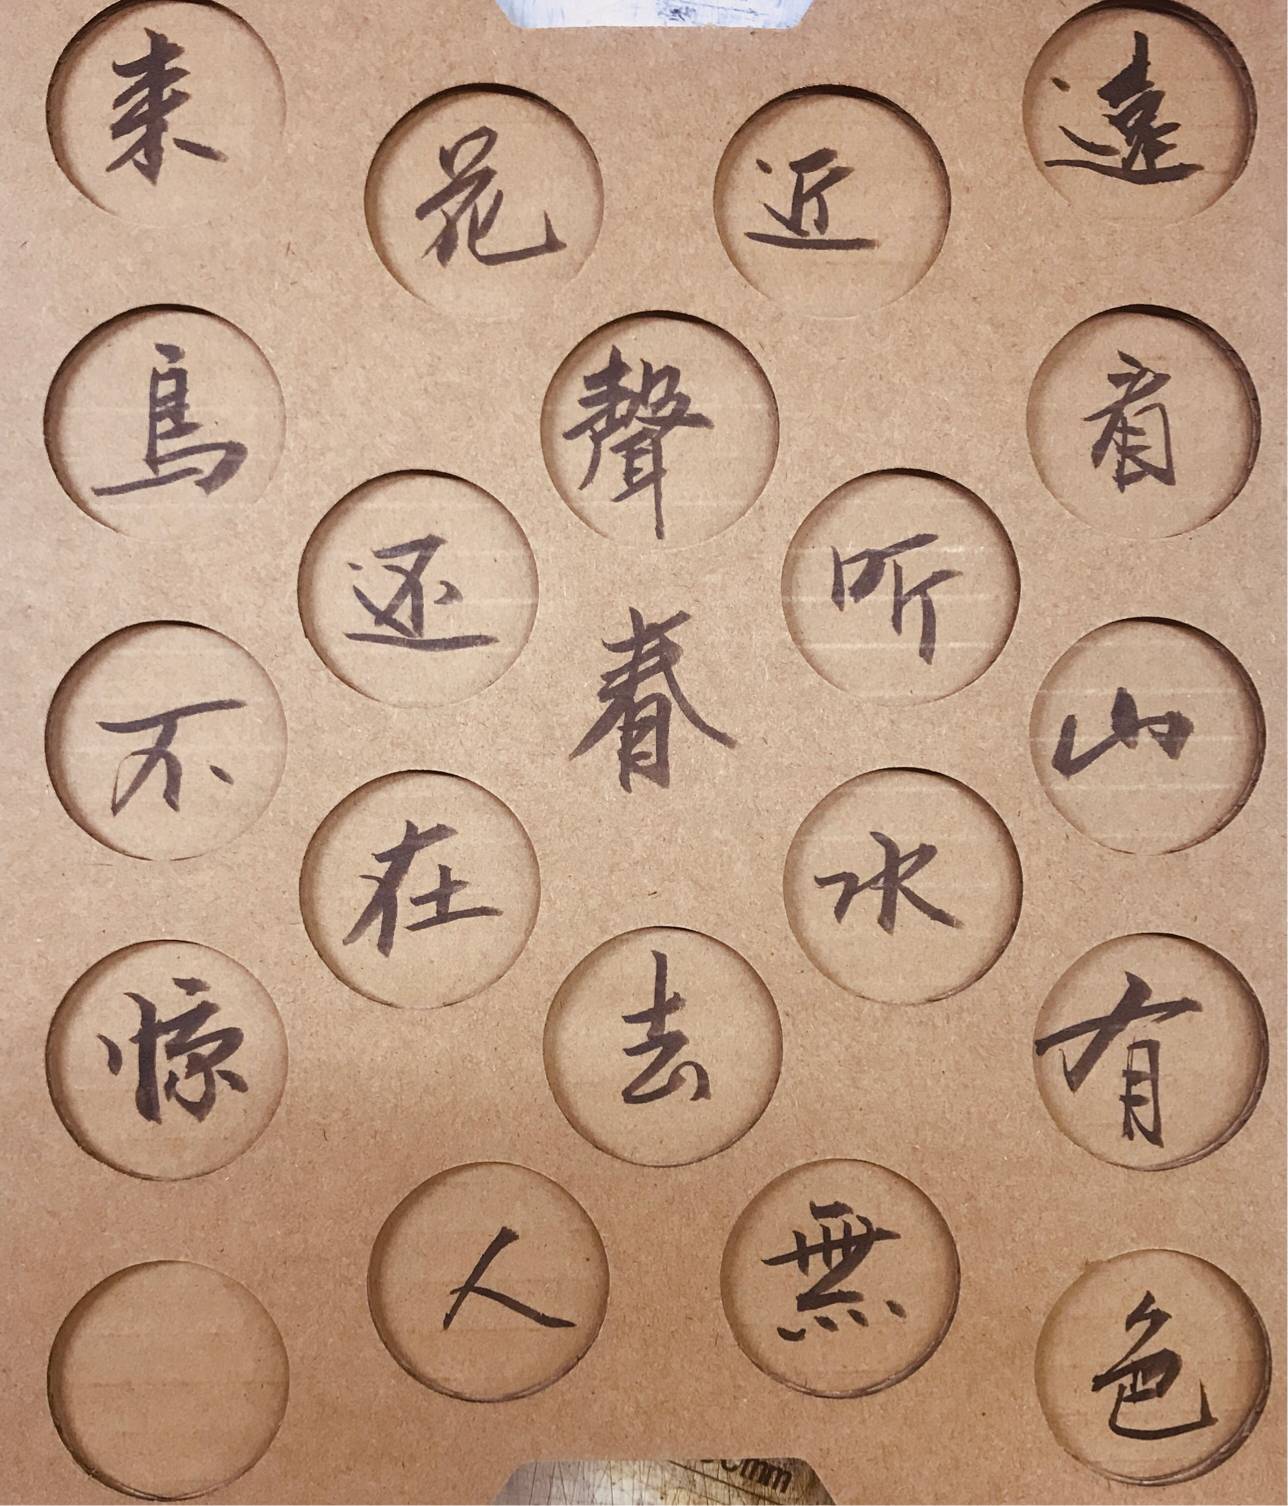 遠看山有色
近听水無
聲春去
花还在人
来鳥不惊
0mm